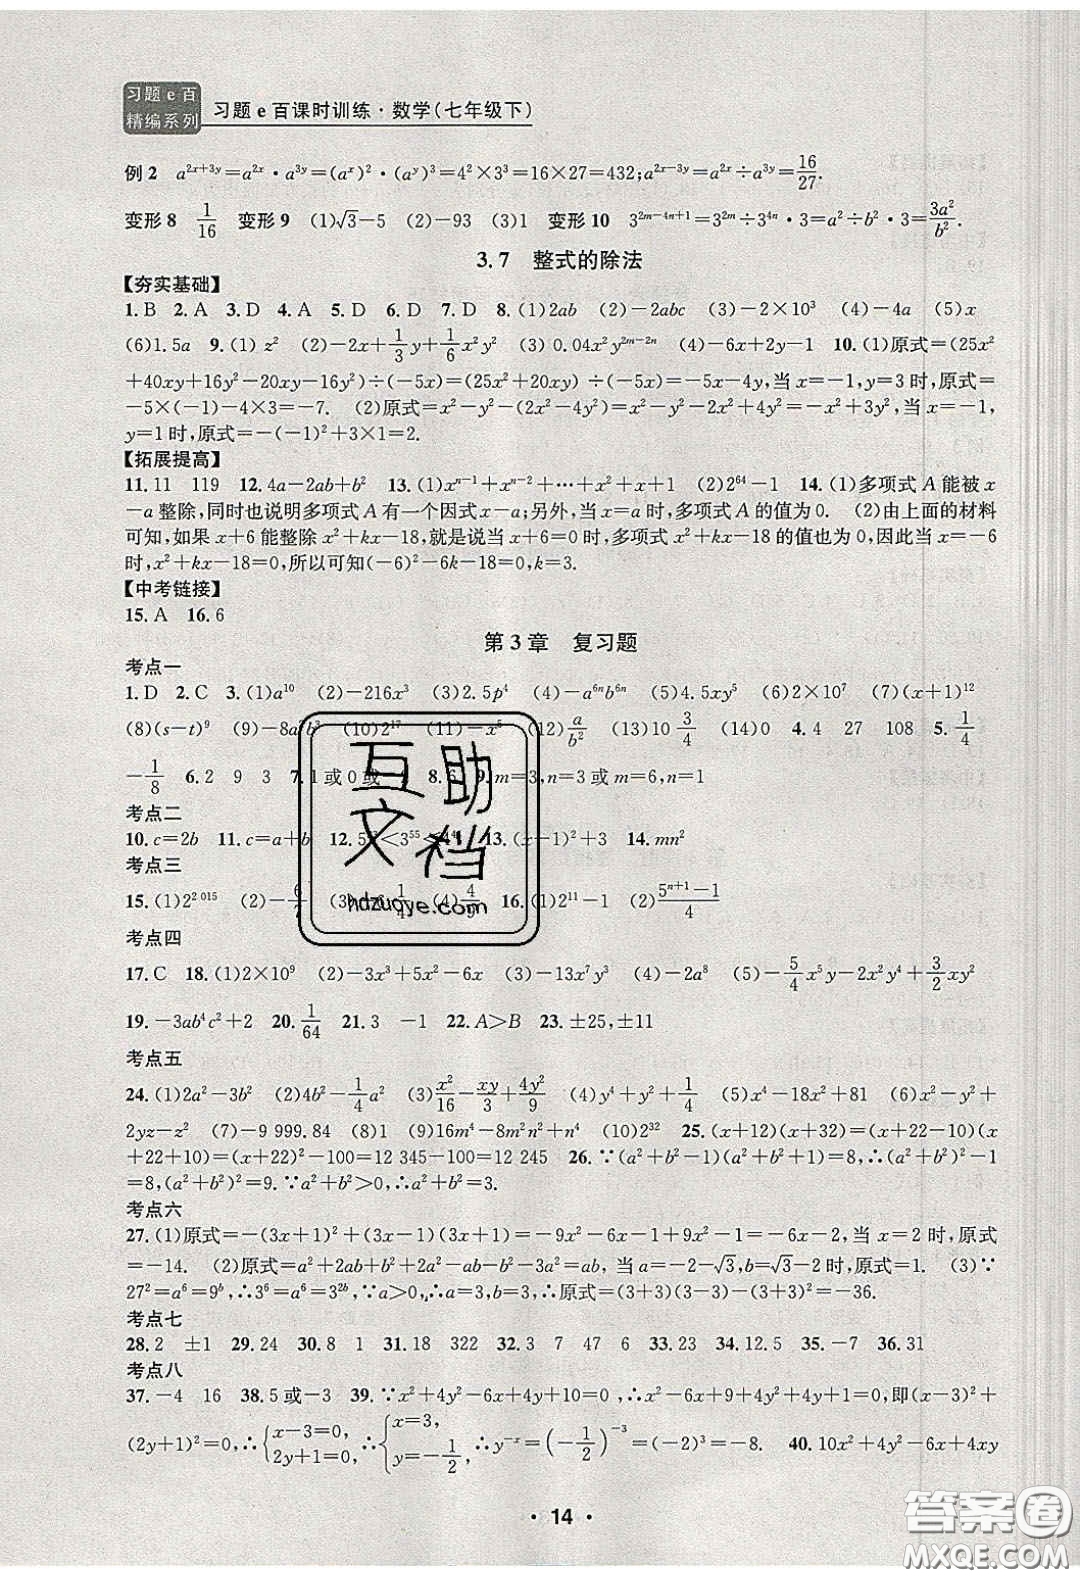 习题e百
精编系列
习题e百课时训练·数学(七年级下)
例2 a^{2x+3y}=a^{2x}·a^{3y}=(a^x)²·(a^y)³=4²×3³=16×27=432;a^{2x-3y}=a^{2x}÷a^{3y}=16/27.
变形8 1/16 变形9 (1)√3-5 (2)-93 (3)1 变形10 3^{2m-4n+1}=3^{2m}÷3^{4n}·3=a²÷b²·3=3a²/b².
3.7 整式的除法
【夯实基础】
1.B 2.A 3.D 4.A 5.D 6.D 7.D 8.(1)2ab (2)-2abc (3)-2×10³ (4)-4a (5)x
(6)1.5a 9.(1)z² (2)-2x+1/3y+1/6x²y² (3)0.04x²y^{2m-2n} (4)-6x+2y-1 10.(1)原式=(25x²
+40xy+16y²-20xy-16y²)÷(-5x)=(25x²+20xy)÷(-5x)=-5x-4y,当x=-1,y=3时,原式=
-5×(-1)-4×3=-7. (2)原式=x²-y²-(2x²-4y²)=x²-y²-2x²+4y²=-x²+3y²,当x=-1,
y=1时,原式=-(-1)²+3×1=2.
【拓展提高】
11.11 119 12.4a-2ab+b² 13.(1)x^{n-1}+x^{n-2}+…+x²+x+1 (2)2^{64}-1 14.(1)多项式A能被x
-a整除,同时也说明多项式A有一个因式x-a;另外,当x=a时,多项式A的值为0. (2)由上面的材料
可知,如果x+6能整除x²+kx-18,就是说当x+6=0时,多项式x²+kx-18的值也为0,因此当x=-6
时,x²+kx-18=0,所以可知(-6)²-6k-18=0,k=3.
【中考链接】
15.A 16.6
第3章 复习题
考点一
1.D 2.C 3.(1)a^{10} (2)-216x³ (3)2.5p⁴ (4)-a^{6n}b^{6n} (5)4.5xy⁵ (6)2×10⁷ (7)(x+1)^{12}
(8)(s-t)⁹ (9)-8a b³ (10)2^{17} (11)-x⁵ (12)a/b² (13)10 3/4 (14)0 4.4 27 108 5.1/4
-1/8 6.2 9 3 7.1或0或 8.6 9.m=3,n=3或m=6,n=1
考点二
10.c=2b 11.c=a+b 12.5 <3^{55}<4 13.(x-1)²+3 14.mn²
考点三
15.(1)2^{2015} (2)- (3) 1/4 (4)4/9 16.(1)2^{11}-1 (2)(5^{n+1}-1)/4
考点四
17.C 18.(1)2×10⁹ (2)-3x³+5x²-6x (3)-13x⁷y³ (4)-2a⁸ (5)-5/4x⁵y-2x²y⁴+3/2xy²
19.-3ab⁴c²+2 20.1/64 21.3 -1 22.A>B 23.±25,±11
考点五
24.(1)2a²-3b² (2)4b²-1/4a² (3)x²/16-xy/3+4y²/9 (4)y⁴+y²+1/4 (5)x⁴-18x²+81 (6)x²-y²+
2yz-z² (7)-9 999.84 (8)1 (9)16m⁴-8m²n²+n⁴ (10)2^{32} 25.(x+12)(x+32)=(x+22-10)(x
+22+10)=(x+22)²-100=12 345-100=12 245 26.∵(a²+b²-1)(a²+b²+1)=8,∴(a²+b²)²-1
=8,(a²+b²)²=9.∵a²+b²>0,∴a²+b²=3.
考点六
27.(1)原式=-(3x+1)²+(3x-1)(3x+1)=-9x²-6x-1+9x²-1=-6x-2,当x=2时,原式
=-14. (2)原式=a²+2ab+b²+2a²-ab-b²-3a²=ab,当a=-2-√3,b=√3-2时,原式=1. (3)∵
27²=a⁶=9^b,∴3⁶=a⁶=3^{2b},∵a>0,∴a=3,b=3,∴原式=(3+3)(3-3)-(3+3)²=-36.
考点七
28.2 ±1 29.24 30.8 1 31.18 322 32.3 7 47 6 33.23 34.12.5 35.-7 36.31
考点八
37.-4 16 38.5或-3 39.∵x²+4y²-6x+4y+10=0,∴x²-6x+9+4y²+4y+1=0,即(x-3)²+
(2y+1)²=0,∴{x-3=0, 2y+1=0,∴{x=3, y=-1/2,∴y^{-x}=(-1/2)^{-3}=(-2)³=-8. 40.10x²+4y²-6x+4xy
·14·
互助
文档
hdzuoye.com
答案圈
MXQE.COM